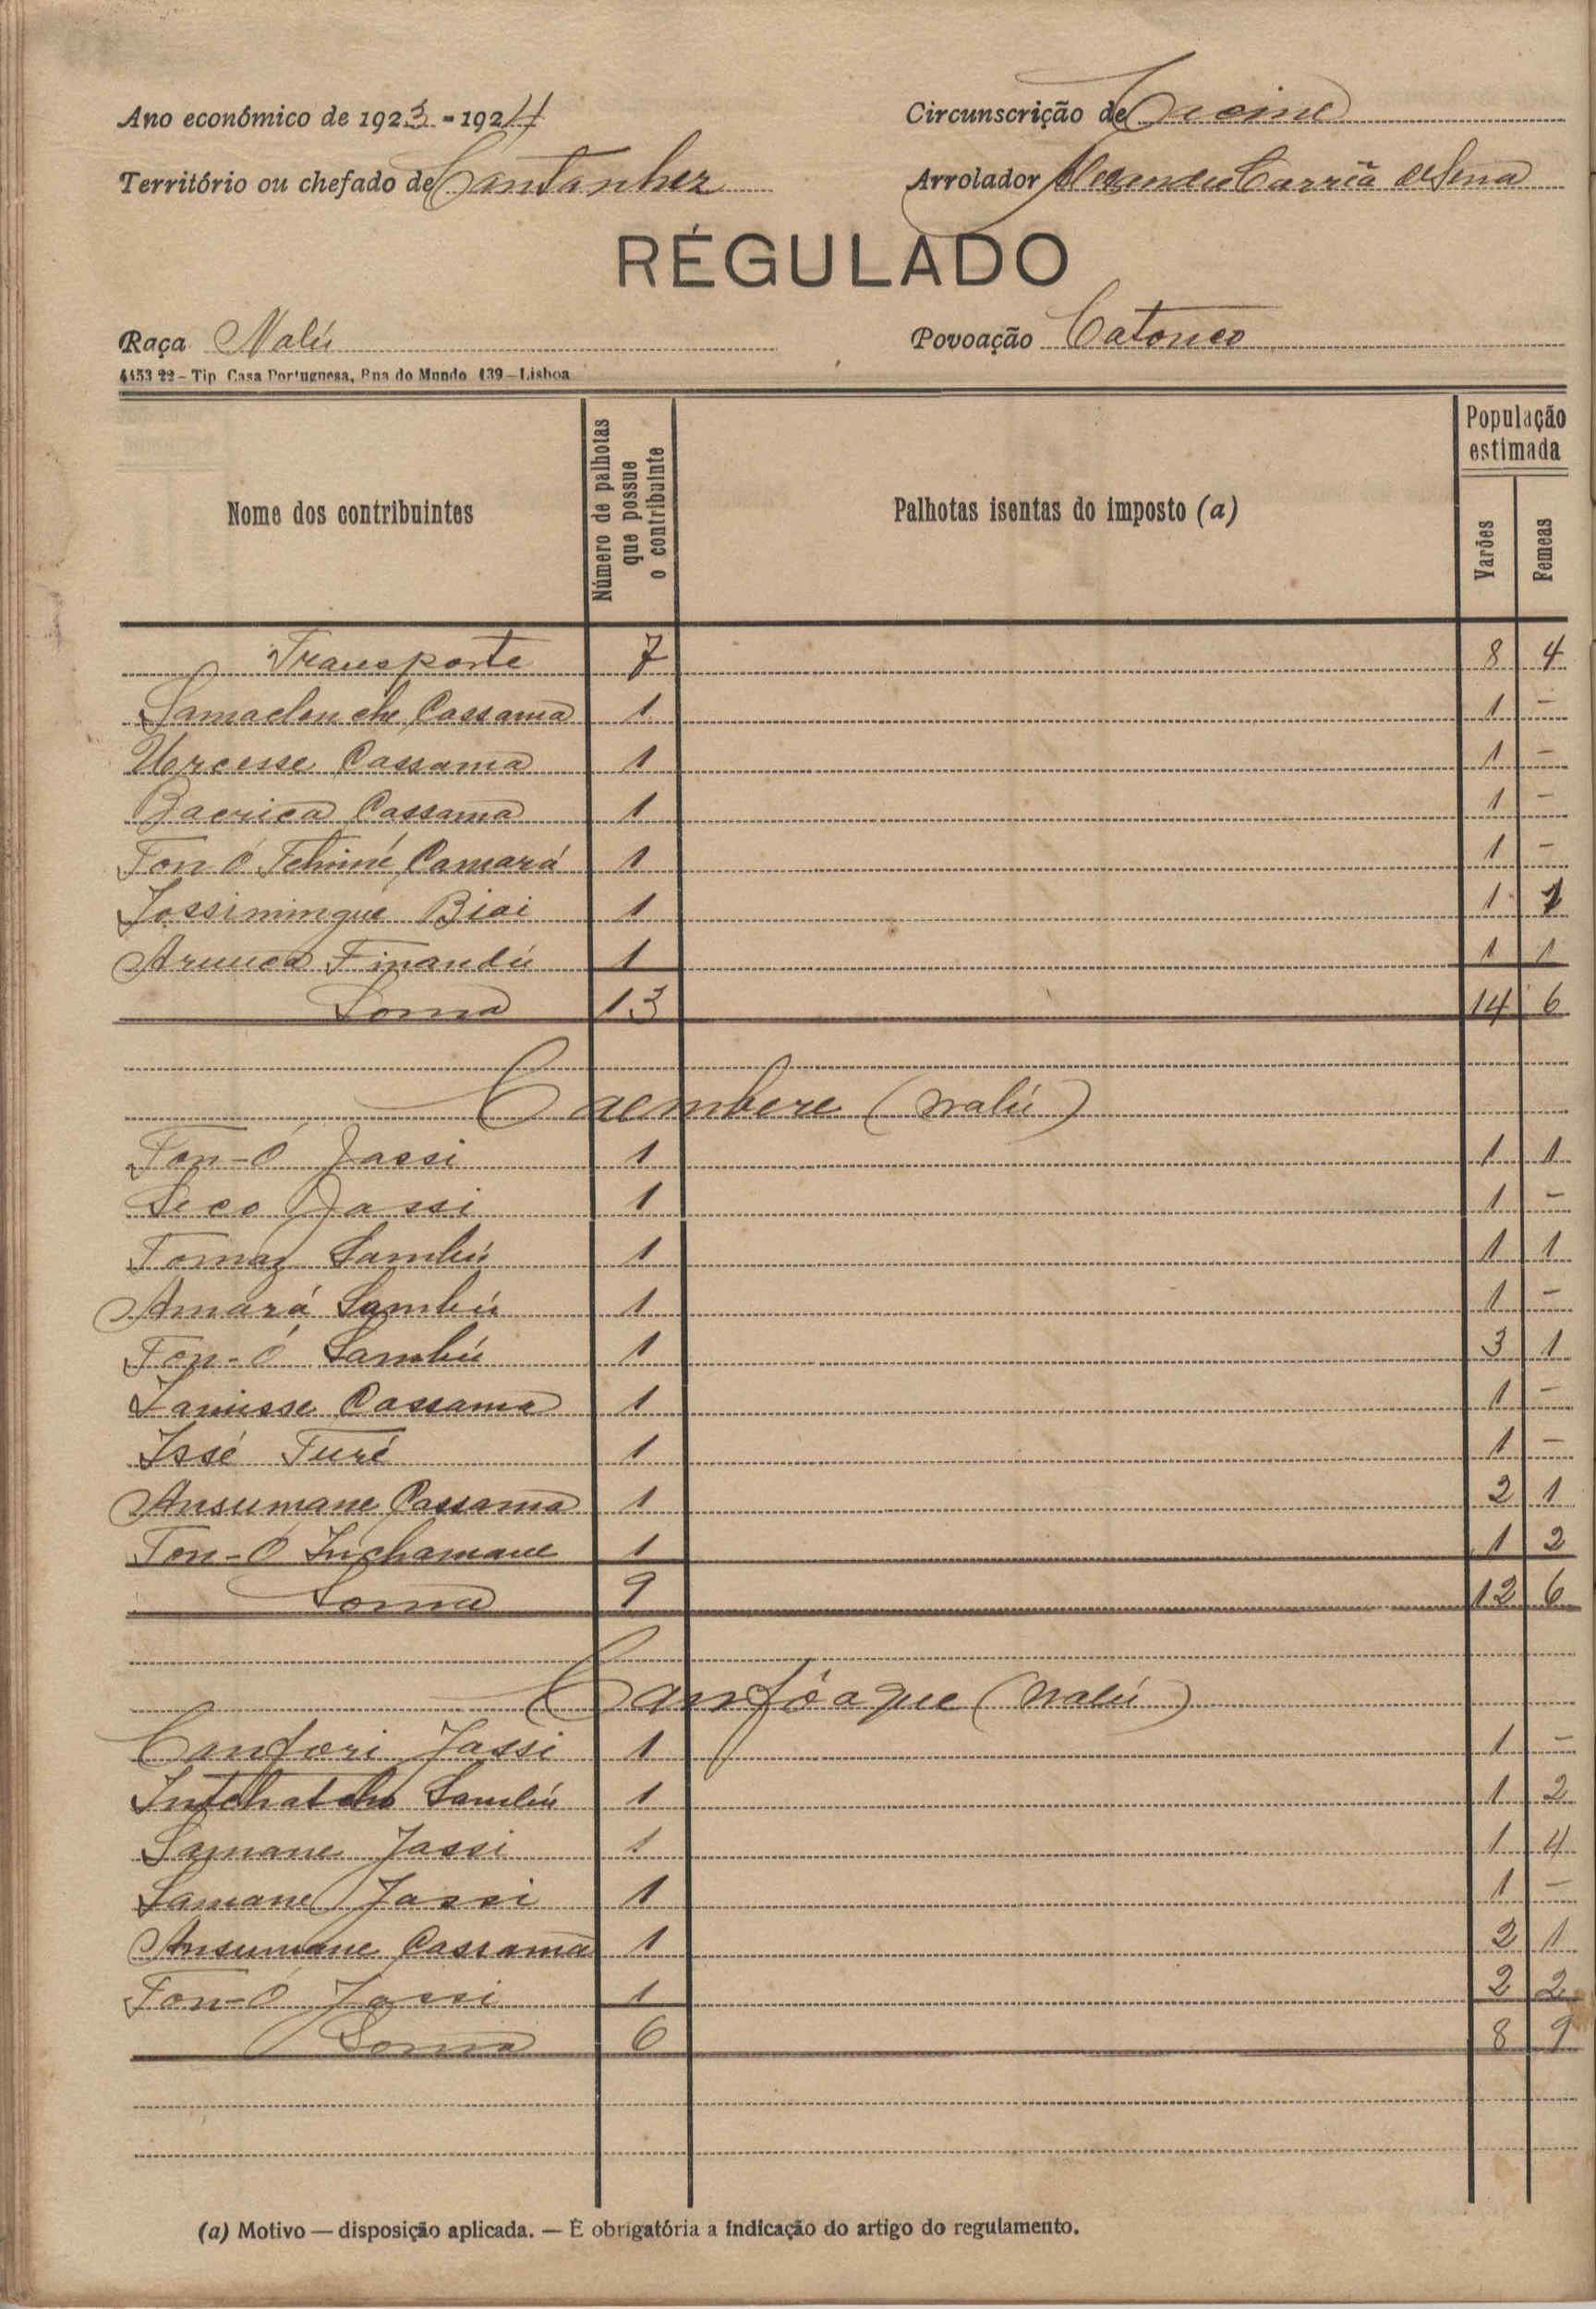 Ano económico de 1923-1924
Circunscrição de Cacine
Território ou chefado de Cantanhez
Arrolador Alexandre Carriã de Sena
RÉGULADO
Raça Nalú
Povoação Catonco
4153 22 – Tip Casa Portuguesa, Rua do Mundo 139 – Lisboa
Nome dos contribuintes
Número de palhotas que possue o contribuinte
Palhotas isentas do imposto (a)
População estimada
Varões
Femeas
Transporte 7 8 4
Cassama 1 1 -
Cassama 1 1 -
Cassama 1 1 -
Ton Ó Tchimé Camará 1 1 -
Jossiningue Biai 1 1 1
Aruuca Finandú 1 1 1
Soma 13 14 6
Caembere (nalú)
Ton-Ó Jassi 1 1 1
Seco Jassi 1 1 -
Tomaz Sambú 1 1 1
Amará Sambú 1 1 -
Ton-Ó Sambú 1 3 1
Lamisse Cassama 1 1 -
Issé Turé 1 1 -
Ansumane Cassama 1 2 1
Ton-Ó Inchamane 1 1 2
Soma 9 12 6
Canfóaque (nalú)
Canfori Jassi 1 1 -
Intchatcho Sambú 1 1 2
Samane Jassi 1 1 4
Samane Jassi 1 1 -
Ansumane Cassama 1 2 1
Ton-Ó Jassi 1 2 2
Soma 6 8 9
(a) Motivo — disposição aplicada. — É obrigatória a indicação do artigo do regulamento.